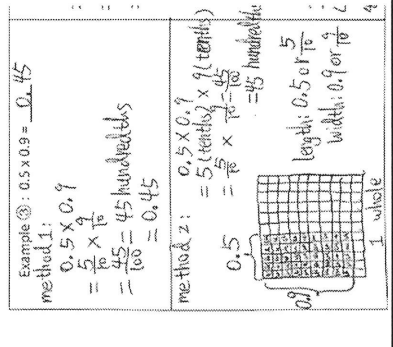 Example ③: 0.5 x 0.9 = 0.45
method 1:
0.5 × 0.9
= 5/10 × 9/10
= 45/100 = 45 hundredths
= 0.45
method 2:
0.5 × 0.9
= 5 (tenths) × 9 (tenths)
= 5/10 × 9/10 = 45/100
= 45 hundredths
0.5
0.9
length: 0.5 or 5/10
width: 0.9 or 9/10
1 whole